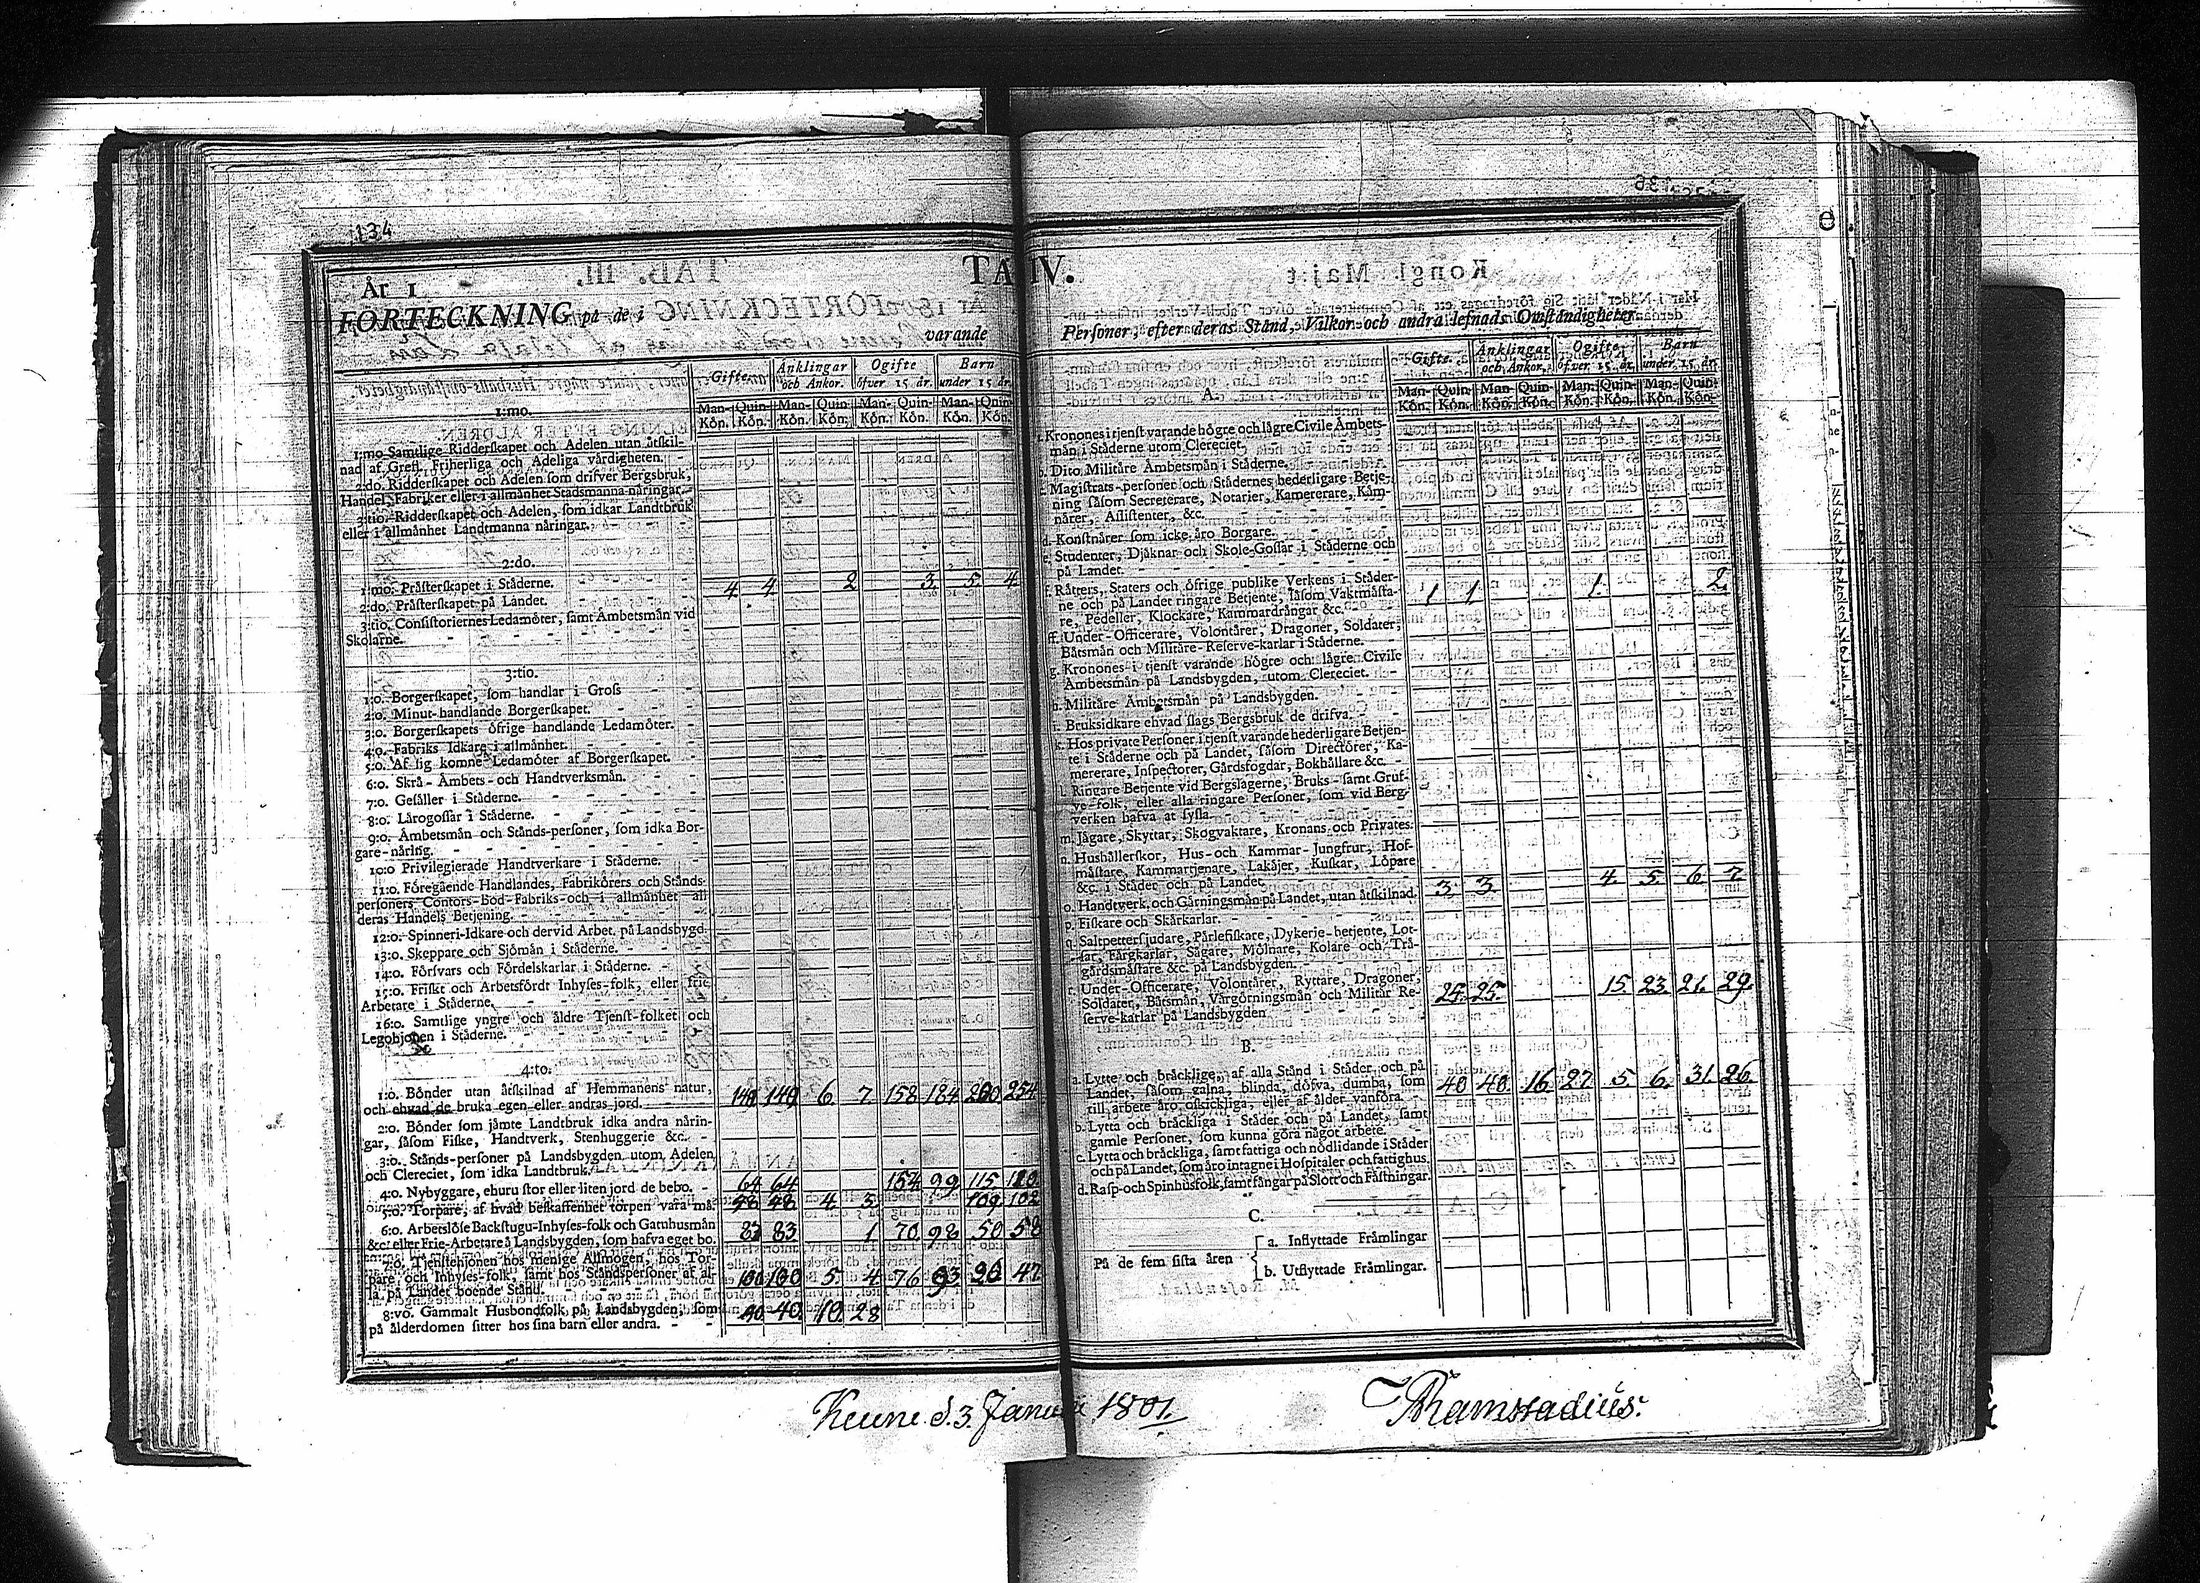 134
136
TAB. IV.
År 1
FÖRTECKNING på de i
varande
Personer, efter deras Stånd, Vilkor och andra lefnads Omständigheter
Gifte. Änklingar och Ankor. Ogifte öfver 15 år. Barn under 15 år.
Man-Kön. Quin-Kön. Man-Kön. Quin-Kön. Man-Kön. Quin-Kön. Man-Kön. Quin-Kön.
1:mo.
1:mo Samtlige Ridderskapet och Adelen utan åtskil-
nad af Grefl. Friherliga och Adeliga värdigheten.
2:do. Ridderskapet och Adelen som drifver Bergsbruk,
Handel, Fabriker eller i allmänhet Stadsmanna näringar.
3:tio. Ridderskapet och Adelen, som idkar Landtbruk
eller i allmänhet Landtmanna näringar.
2:do.
1:mo. Prästerskapet i Städerne.
2:do. Prästerskapet på Landet. 4 4 2 3 5 4
3:tio. Consistoriernes Ledamöter, samt Ämbetsmän vid
Skolarne.
3:tio.
1:o. Borgerskapet, som handlar i Gross
2:o. Minut-handlande Borgerskapet.
3:o. Borgerskapets öfrige handlande Ledamöter.
4:o. Fabriks Idkare i allmänhet.
5:o. Af sig komne Ledamöter af Borgerskapet.
6:o. Skrå-Ämbets-och Handtverksmän.
7:o. Gesäller i Städerne.
8:o. Lärogossar i Städerne.
9:o. Ämbetsmän och Stånds-personer, som idka Bor-
gare-näring.
10:o Privilegierade Handtverkare i Städerne.
11:o. Föregående Handlandes, Fabrikörers och Stånds-
personers Contors-Bod-Fabriks-och i allmänhet all
deras Handels Betjening.
12:o. Spinneri-Idkare och dervid Arbet. på Landsbygd.
13:o. Skeppare och Sjömän i Städerne.
14:o. Försvars och Fördelskarlar i Städerne.
15:o. Friskt och Arbetsfördt Inhyses-folk, eller frie
Arbetare i Städerne.
16:o. Samtlige yngre och äldre Tjenst-folket och
Legohjonen i Städerne.
4:to.
1:o. Bönder utan åtskilnad af Hemmanens natur,
och ehvad de bruka egen eller andras jord. 140 140 6. 7 158 184 200 254
2:o. Bönder som jämte Landtbruk idka andra närin-
gar, såsom Fiske, Handtverk, Stenhuggerie &c.
3:o. Stånds-personer på Landsbygden utom Adelen
och Clereciet, som idka Landtbruk.
4:o. Nybyggare, ehuru stor eller liten jord de bebo. 64 64 154 99 115 110
5:o. Torpare, af hvad beskaffenhet torpen vara må. 48 48 4. 3 109 102
6:o. Arbetslöse Backstugu-Inhyses-folk och Gatuhusmän
&c. eller Frie-Arbetare å Landsbygden, som hafva eget bo. 83 83 1 70 98 50 58
7:o. Tjenstehjonen hos menige Allmogen, hos Tor-
pare och Inhyses-folk, samt hos Ståndspersoner af al-
la på Landet boende Stånd. 100 100 5. 4 76 93 20 47
8:vo. Gammalt Husbondfolk på Landsbygden, som
på ålderdomen sitter hos sina barn eller andra. 40 40 10 28
Gifte. Änklingar och Ankor. Ogifte öfver 15 år. Barn under 15 år.
Man-Kön. Quin-Kön. Man-Kön. Quin-Kön. Man-Kön. Quin-Kön. Man-Kön. Quin-Kön.
A.
Kronones i tjenst varande högre och lägre Civile Ämbets-
män i Städerne utom Clereciet.
b. Dito. Militäre Ämbetsmän i Städerne.
c. Magistrats-personer och Städernes hederligare Betje-
ning såsom Secreterare, Notarier, Kamererare, Käm-
närer, Assistenter, &c.
d. Konstnärer som icke äro Borgare.
e. Studenter, Djäknar och Skole-Gossar i Städerne och
på Landet.
f. Rätters, Staters och öfrige publike Verkens i Städer-
ne och på Landet ringare Betjente, såsom Vaktmästa-
re, Pedeller, Klockare, Kammardrängar &c. 1 1 1. 2.
ff. Under-Officerare, Volontärer, Dragoner, Soldater,
Båtsmän och Militäre-Reserve-karlar i Städerne.
g. Kronones i tjenst varande högre och lägre Civile
Ämbetsmän på Landsbygden, utom Clereciet.
h. Militäre Ämbetsmän på Landsbygden.
i. Bruksidkare ehvad slags Bergsbruk de drifva.
k. Hos private Personer i tjenst varande hederligare Betjen-
te i Städerne och på Landet, såsom Directörer, Ka-
mererare, Inspectorer, Gårdsfogdar, Bokhållare &c.
l. Ringare Betjente vid Bergslagerne, Bruks-samt Gruf-
ve-folk, eller alla ringare Personer, som vid Berg-
verken hafva at syssla.
m. Jägare, Skyttar, Skogvaktare, Kronans och Privates.
n. Hushållerskor, Hus-och Kammar-Jungfrur, Hof-
mästare, Kammartjenare, Lakåjer, Kuskar, Löpare
&c. i Städer och på Landet.
o. Handtverk, och Gärningsmän på Landet, utan åtskilnad. 3. 3. 4. 5. 6 7.
p. Fiskare och Skärkarlar.
q. Saltpettersjudare, Pärlefiskare, Dykerie-betjente, Lot-
sar, Färgkarlar, Sågare, Mölnare, Kolare och Trä-
gårdsmästare &c. på Landsbygden.
r. Under-Officerare, Volontärer, Ryttare, Dragoner,
Soldater, Båtsmän, Värgörningsmän och Militär Re-
serve-karlar på Landsbygden 25. 25. 15. 23. 21. 29.
B.
a. Lytte och bräcklige, af alla Stånd i Städer och på
Landet, såsom galna, blinda, döfva, dumba, som
till arbete äro oskickliga, eller af ålder vanföra. 40 40. 16. 27. 5. 6. 31. 26.
b. Lytta och bräckliga i Städer och på Landet, samt
gamle Personer, som kunna göra något arbete.
c. Lytta och bräckliga, samt fattiga och nödlidande i Städer
och på Landet, som äro intagne i Hospitaler och fattighus.
d. Rasp-och Spinhusfolk, samt fångar på Slott och Fästningar.
C.
På de fem sista åren
a. Inflyttade Främlingar
b. Utflyttade Främlingar.
Keune d. 3. Januarii 1801.
Ramstadius.